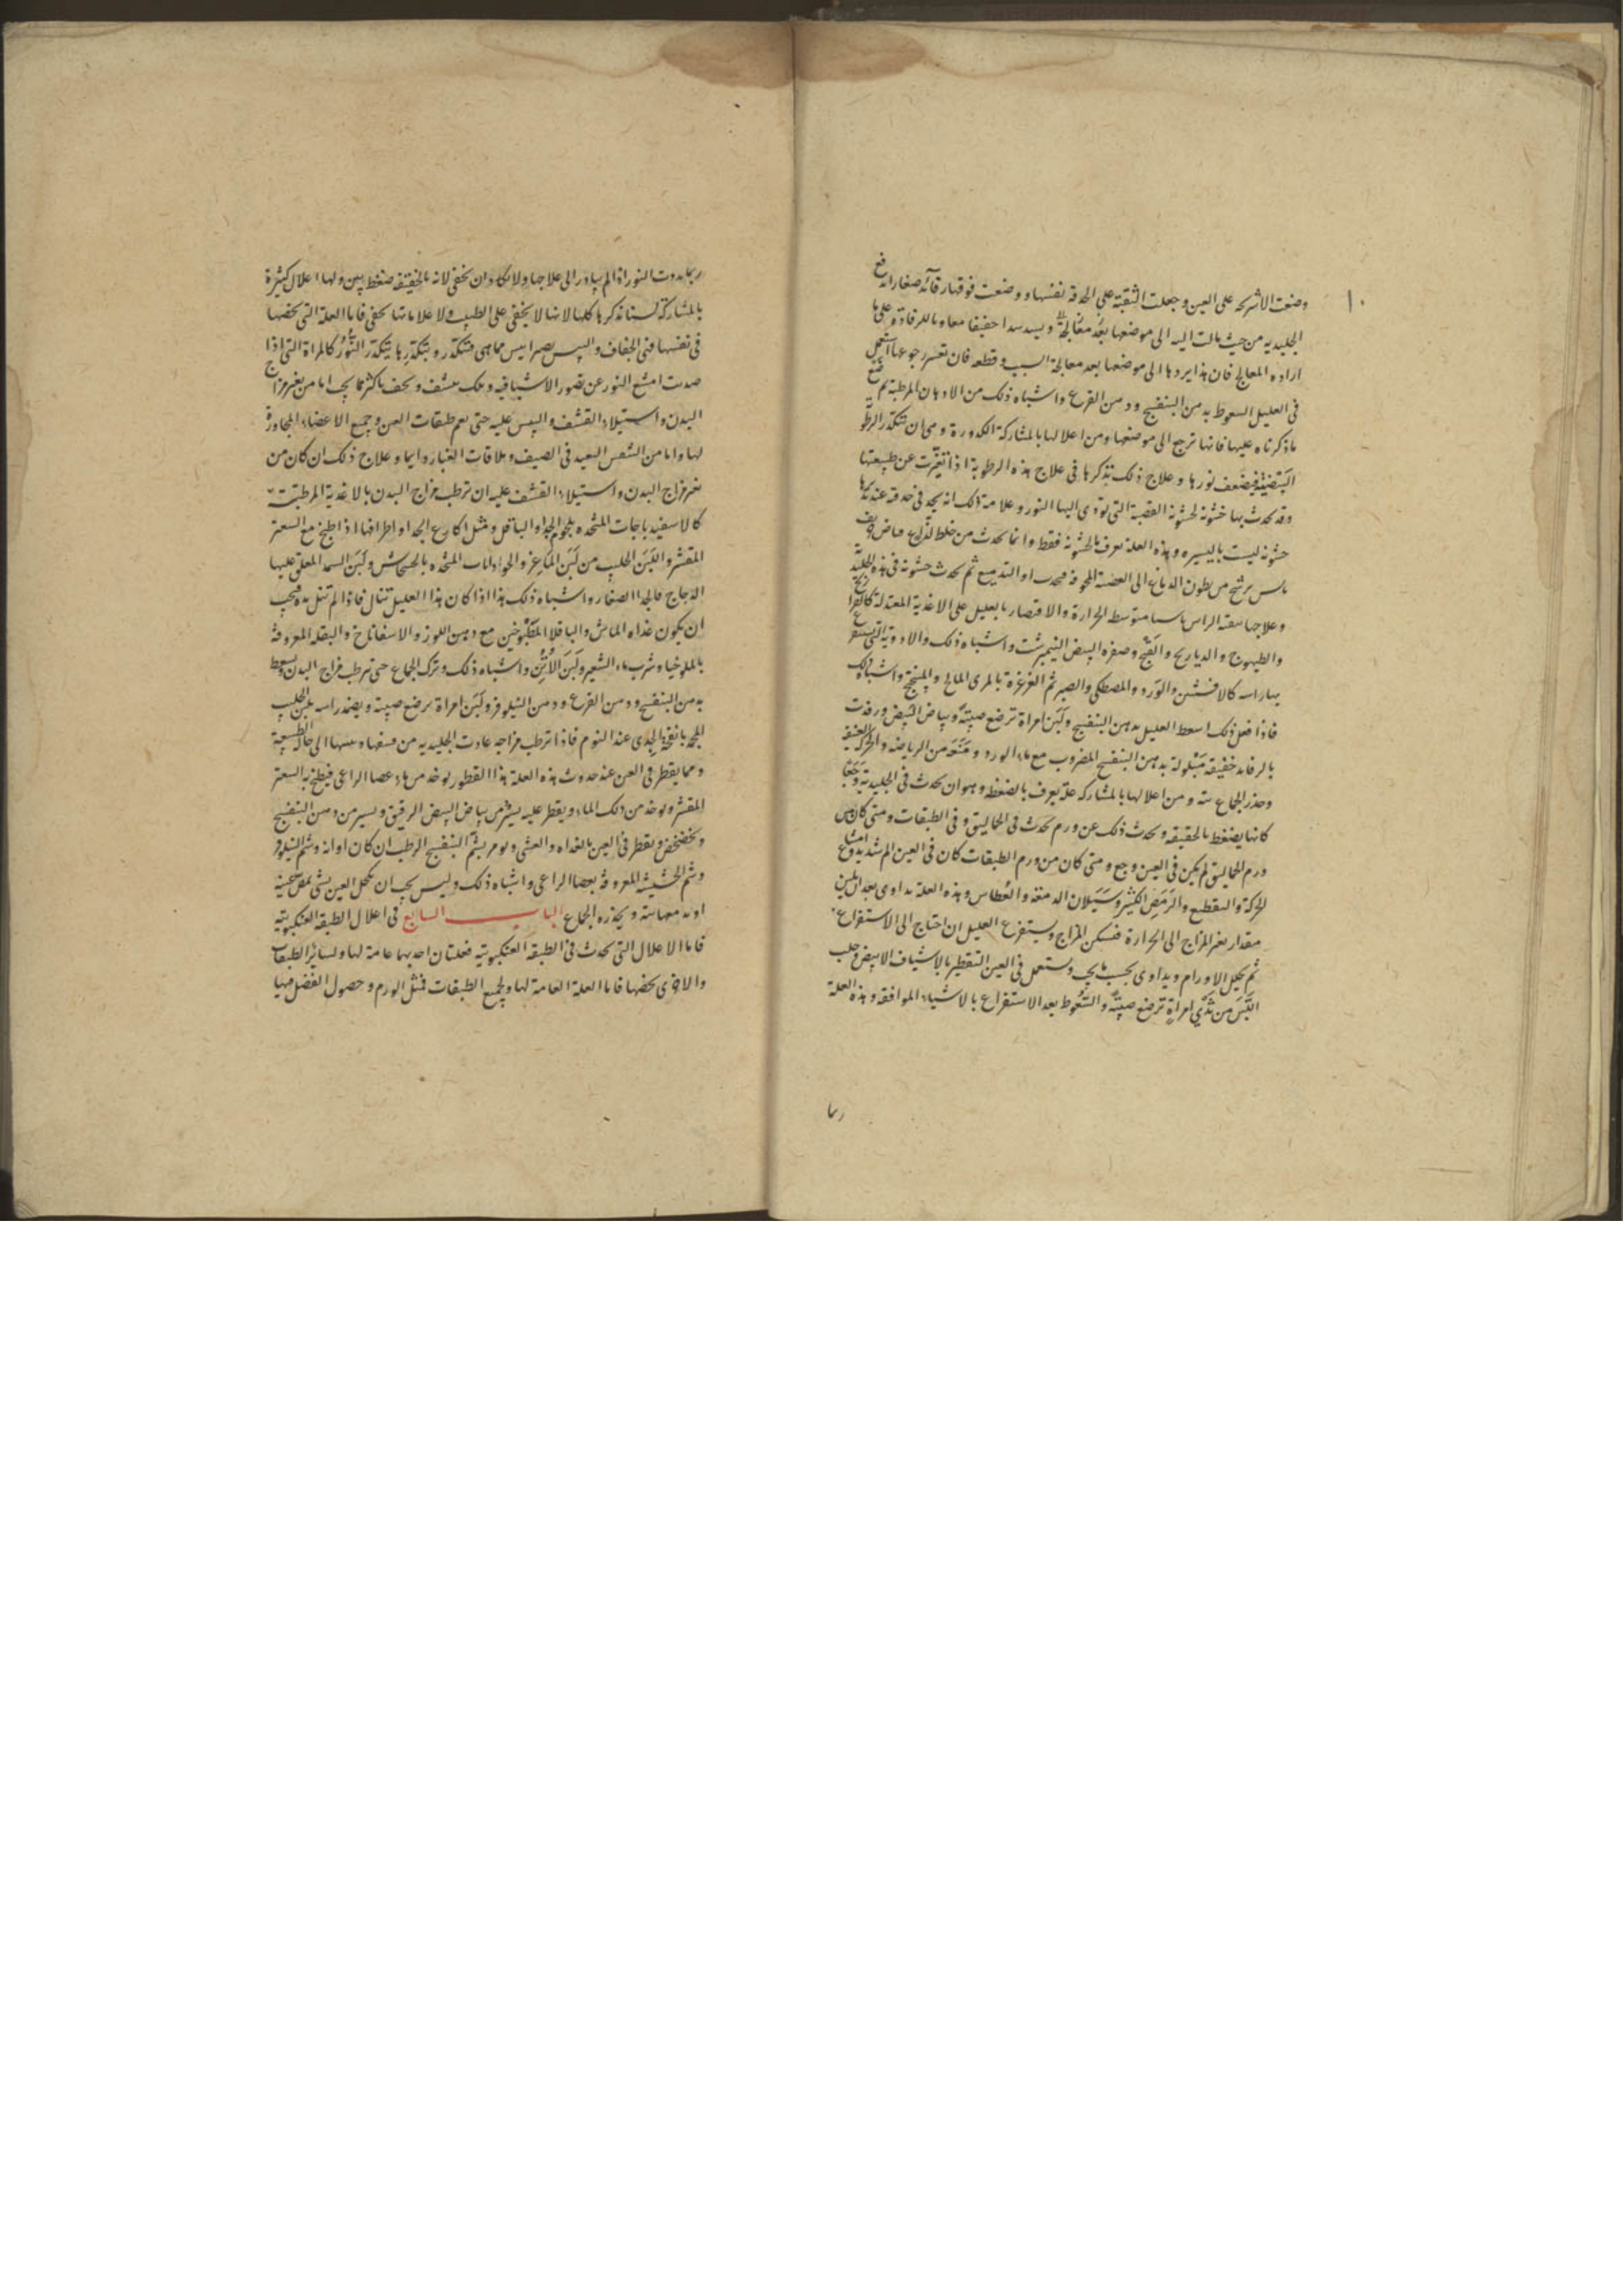 ١٠
وضعت الاشرحه على العين وجعلت الثقبة على الحدقة نفسها ووضعت فوقها رقائد صغارا لدفع
الجليديه من حيث مالت اليه الى موضعها بعد معالجة ويسد سدا خفيفا معاونا للرفادة وعلى ما
اراده المعالج فان هذا يردها الى موضعها بعد معالجة السبب وقطعه فان تعسر رجوعها استعمل
فى العليل السعوط بدهن البنفسج ودهن القرع واشباه ذلك من الادهان المرطبة ثم
ماذكرناه عليها فانها ترجع الى موضعها ومن اعلالها بالمشاركة الكدورة وهى ان تتكدر الرطوبة
البيضية فيضعف نورها وعلاج ذلك نذكرها فى علاج هذه الرطوبة اذا تغيرت عن طبيعتها
وقد يحدث بها خشونة لخشونة العصبة التى تودى اليها النور وعلامة ذلك انه يجد فى حدقه عند
خشونه ليست باليسيره وهذه العلة تعرف بالخشونه فقط وانما تحدث من خلط لذاع حامض
يرشح من بطون الدماغ الى العصبة المجوفة ثم تحدث خشونة فى هذه الجليدية
وعلاجها تنقية الراس متوسط الحرارة والاقتصار بالعليل على الاغذية المعتدلة كالفراريج
والطيهوج والدياريج والقبج وصفرة البيض النيمبرشت واشباه ذلك والادوية التى
بها راسه كالافسنتين والورد والمصطكى والصبر ثم الغرغرة بالمرى المالح والميبختج واشباه ذلك
فاذا فعل ذلك اسعط العليل بدهن البنفسج ولبن امراة ترضع صبية وبياض البيض ورفدت
بالرفايد خفيفة مبلولة بدهن البنفسج المضروب مع ماء الورد ومنعه من الرياضة والحركة العنيفة
وحذر الجماع ومن اعلالها بالمشاركه علة يعرف بالضغط وهو ان يحدث فى الجليدية وجعا
كانها يضغط بالحقيقه ويحدث ذلك عن ورم يحدث فى الحماليق وفى الطبقات ومتى كان من
ورم الحماليق لم يكن فى العين وجع ومتى كان من ورم الطبقات كان فى العين الم شديد مع امتناع
الحركة والتقطيع والرمص الكثير وسيلان الدمعة والعطاس وهذه العلة يداوى بعد ان تلين
مقدار تغير المزاج الى الحرارة فتسكن المزاج ويستفرغ العليل ان احتاج الى الاستفراغ
ثم تحليل الاورام ويداوى بحسب ما يجب ويستعمل فى العين التقطير بالاشياف الابيض وحلب
اللبن من ثدى امراة ترضع صبية والسعوط بعد الاستفراغ بالاشياء الموافقه وهذه العلة
ربما
ربما بدوت النور اذا لم يبادر الى علاجها ولا يكاد ان يخفى لانه بالحقيقة ضغط بين ولها اعلال كثيرة
بالمشاركة لسنا نذكرها كلها لانها لا يخفى على الطبيب ولا علاماتها تخفى فاما العلة التى تخصها
فى نفسها فهى الجفاف واليبس يصرا يبس مما هى فتتكدر وبتكدرها يتكدر النور كالمراة التى اذا
صدت امتنع النور عن تصور الاشيا فيه وتلك تنشف ويجف باكثر مما يجب اما من تغير مزاج
البدن واستيلاء القشف واليبس عليه حتى يعم طبقات العين وجميع الاعضاء المجاورة
لها واما من الشمس البعيد فى الصيف وملاقات الغبار دايما وعلاج ذلك ان كان من
تغير مزاج البدن واستيلاء القشف عليه ان ترطب مزاج البدن بالاغذية المرطبة
كالاسفيدباجات المتخذه بلحوم الجداء والباقلى ومثل اكارع الجداء واطرافها اذا طبخ مع الشعير
المقشر واللبن الحليب من لبن الماعز والجواذابات المتخذه بالخشخاش ولبن المعلق عليها
الدجاج فالجدا الصغار واشباه ذلك هذا اذا كان هذا العليل تنال فاذا لم تنل يده فيجب
ان يكون غذاه الماش والباقلا المطبوخين مع دهن اللوز والاسفاناخ والبقلة المعروفة
بالملوخيا وشرب ماء الشعير ولبن الاتن واشباه ذلك وترك الجماع حتى ترطب مزاج البدن ويسعط
بدهن البنفسج ودهن القرع ودهن النيلوفر ولبن امراة ترضع صبية ويضمد راسه بلبن الحليب
المجمد بانفحة الجدى عند النوم فاذا ترطب مزاجه عادت الجليديه من الى حال الطبيعية
ومما يقطر فى العين عند حدوث هذه العلة هذا القطور يوخذ من ماء عصا الراعى فيطبخ به الشعير
المقشر ويوخذ من ذلك الماء ويقطر عليه يسير من بياض البيض الرقيق ويسير من دهن البنفسج
ويخضخض ويقطر فى العين بالغداه والعشى ويومر بشم البنفسج الرطب ان كان اوانه وشم النيلوفر
وشم الحشيشة المعروفة بعصا الراعى واشباه ذلك وليس يجب ان تكحل العين بشى
ويحذره الجماع الباب السابع فى اعلال الطبقة العنكبوتية
فاما الاعلال التى تحدث فى الطبقة العنكبوتية فعلتان احديهما عامة لها ولساير الطبقات
والاخرى تخصها فاما العلة العامة لها ولجميع الطبقات فمثل الورم وحصول الفضل فيها